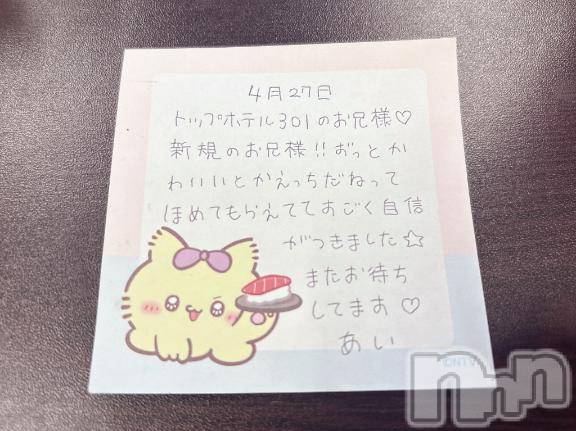 4月27日
トップホテル301のお兄様♡
新規のお兄様!!おっとか
わいいとかえっちだねって
ほめてもらえててすごく自信
がつきました☆
またお待ち
してます♡
あい